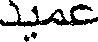 عميد